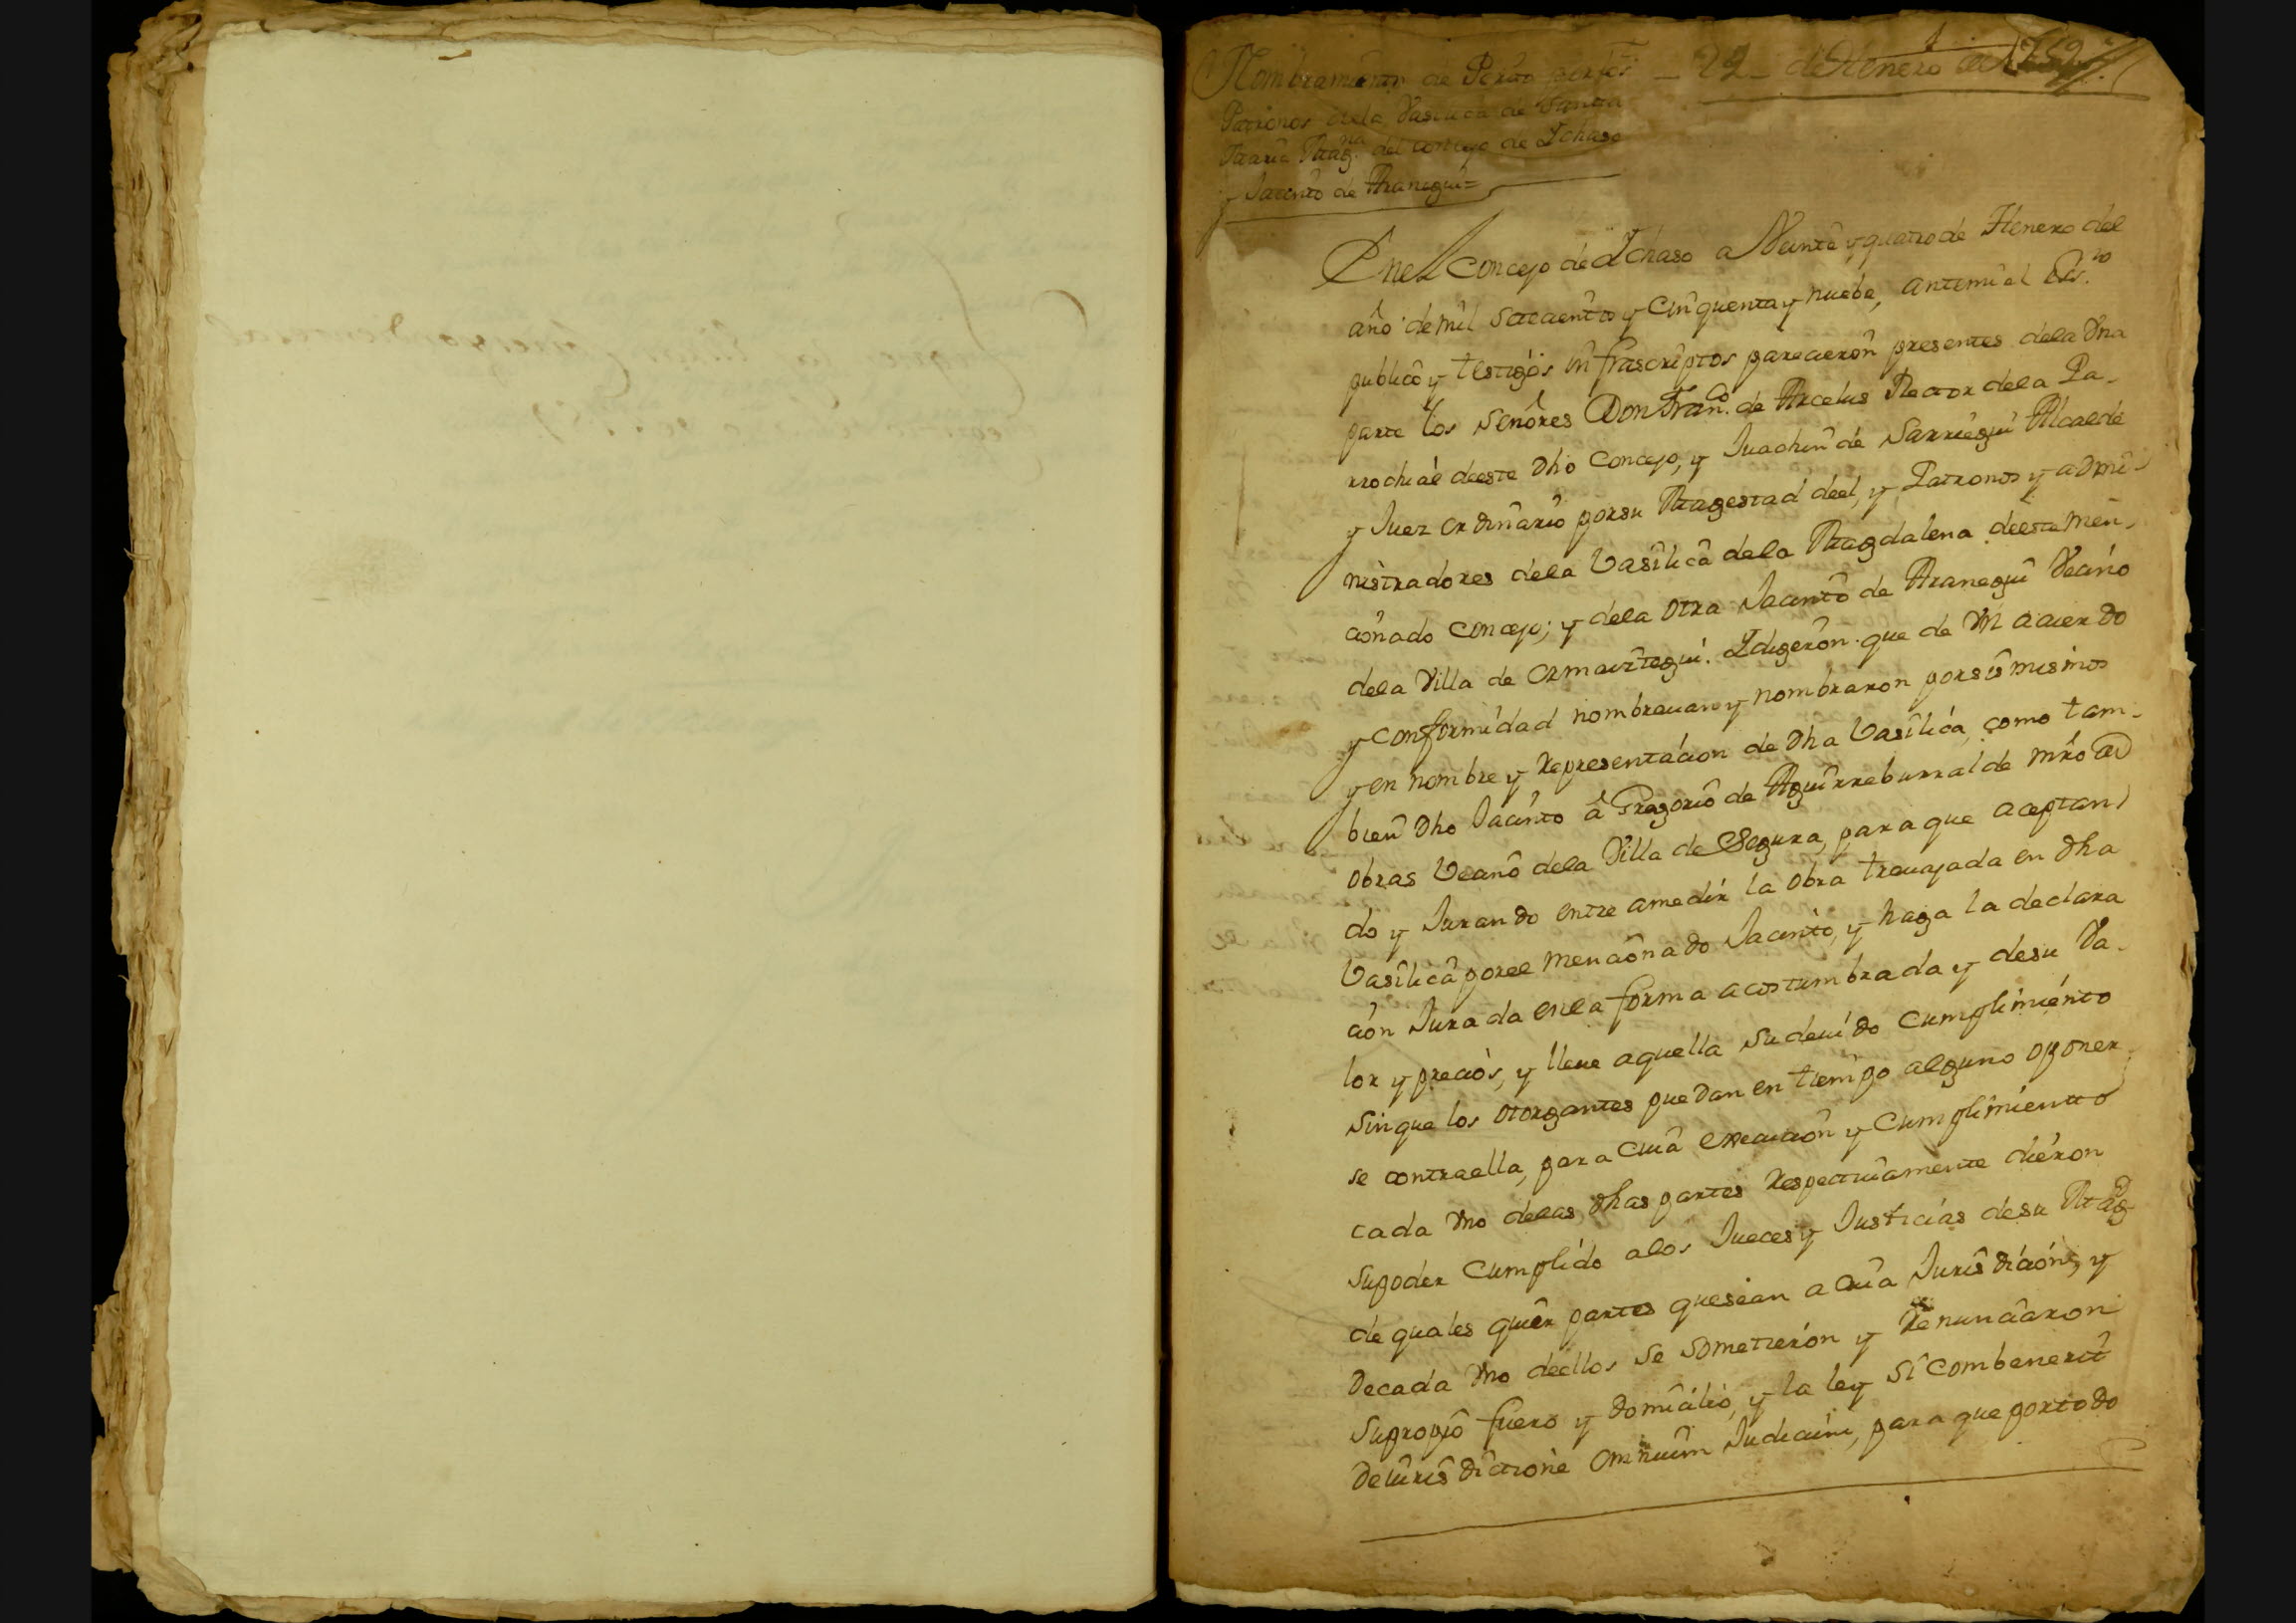 1
Nombramiento de Perito por los
Patronos dela Vasilica de Santa
Maria Mag.na del concejo de Ichaso
y Jacinto de Aranegui =
de Henero de 1759
Enel Concejo de Ichaso a Veinte y quatro de Henero del
año de mil setecientos y Cinquenta y nuebe, antemi el Es.no
publico y testigos infrascriptos parecieron presentes dela Vna
parte los Señores Don Fran.co de Arcelus Rector dela Pa-
rrochial deeste dho Concejo, y Juachin de Sarriegui Alcalde
y Juez ordinario porsu Magestad deel, y Patronos y admi-
nistradores dela Vasilica dela Magdalena deeste men-
cionado concejo; y dela otra Jacinto de Aranegui Vecino
dela Villa de Ormaiztegui. Idigeron que de Vn acuerdo
y conformidad nombrauan y nombraron porsi mismos
y en nombre y Representacion de dha Vasilica, como tam-
bien dho Jacinto â Gregorio de Aguirreburralde mro de
obras Vecino dela Villa de Segura, para que aceptan
do y Jurando entre amedir la obra trauajada en dha
Vasilica porel mencionado Jacinto, y haga la declara
cion Jurada enla forma acostumbrada y desu Va-
lor y precios, y lleue aquella su deuido cumplimiento
sinque los otorgantes puedan en tiempo alguno oponer
se contraella, para cuia execucion y Cumplimiento
cada Vno delas dhas partes Respectiuamente dieron
supoder Cumplido alos Jueces y Justicias desu Mag.d
de quales quier partes quesean a Cuia Jurisdicion, y
Decada Vno deellos se sometieron y Renunciaron
Supropio fuero y Domicilio, y la ley Si combenerit
Deiurisdictione omnium Judicum, para que portodo